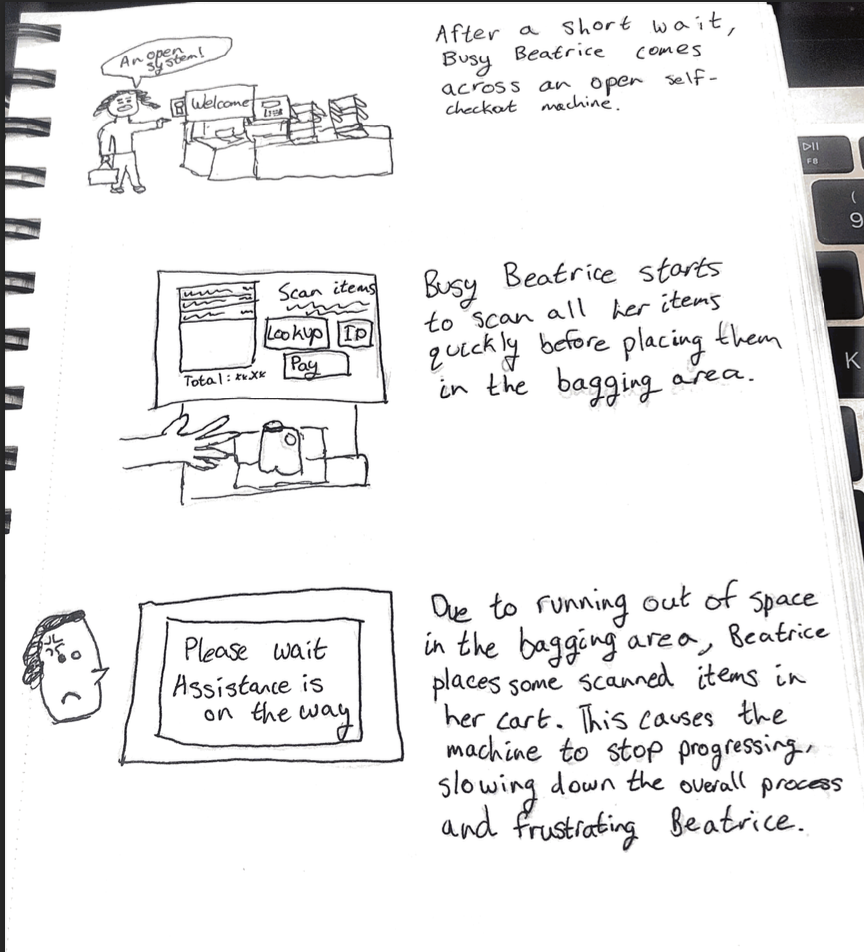 An open
system!
Welcome
After a short wait,
Busy Beatrice comes
across an open self-
checkout machine.
Scan items
Lookup
ID
Pay
Total: xx.xx
Busy Beatrice starts
to scan all her items
quickly before placing them
in the bagging area.
Please wait
Assistance is
on the way
Due to running out of space
in the bagging area, Beatrice
places some scanned items in
her cart. This causes the
machine to stop progressing,
slowing down the overall process
and frustrating Beatrice.
F8
(
9
K